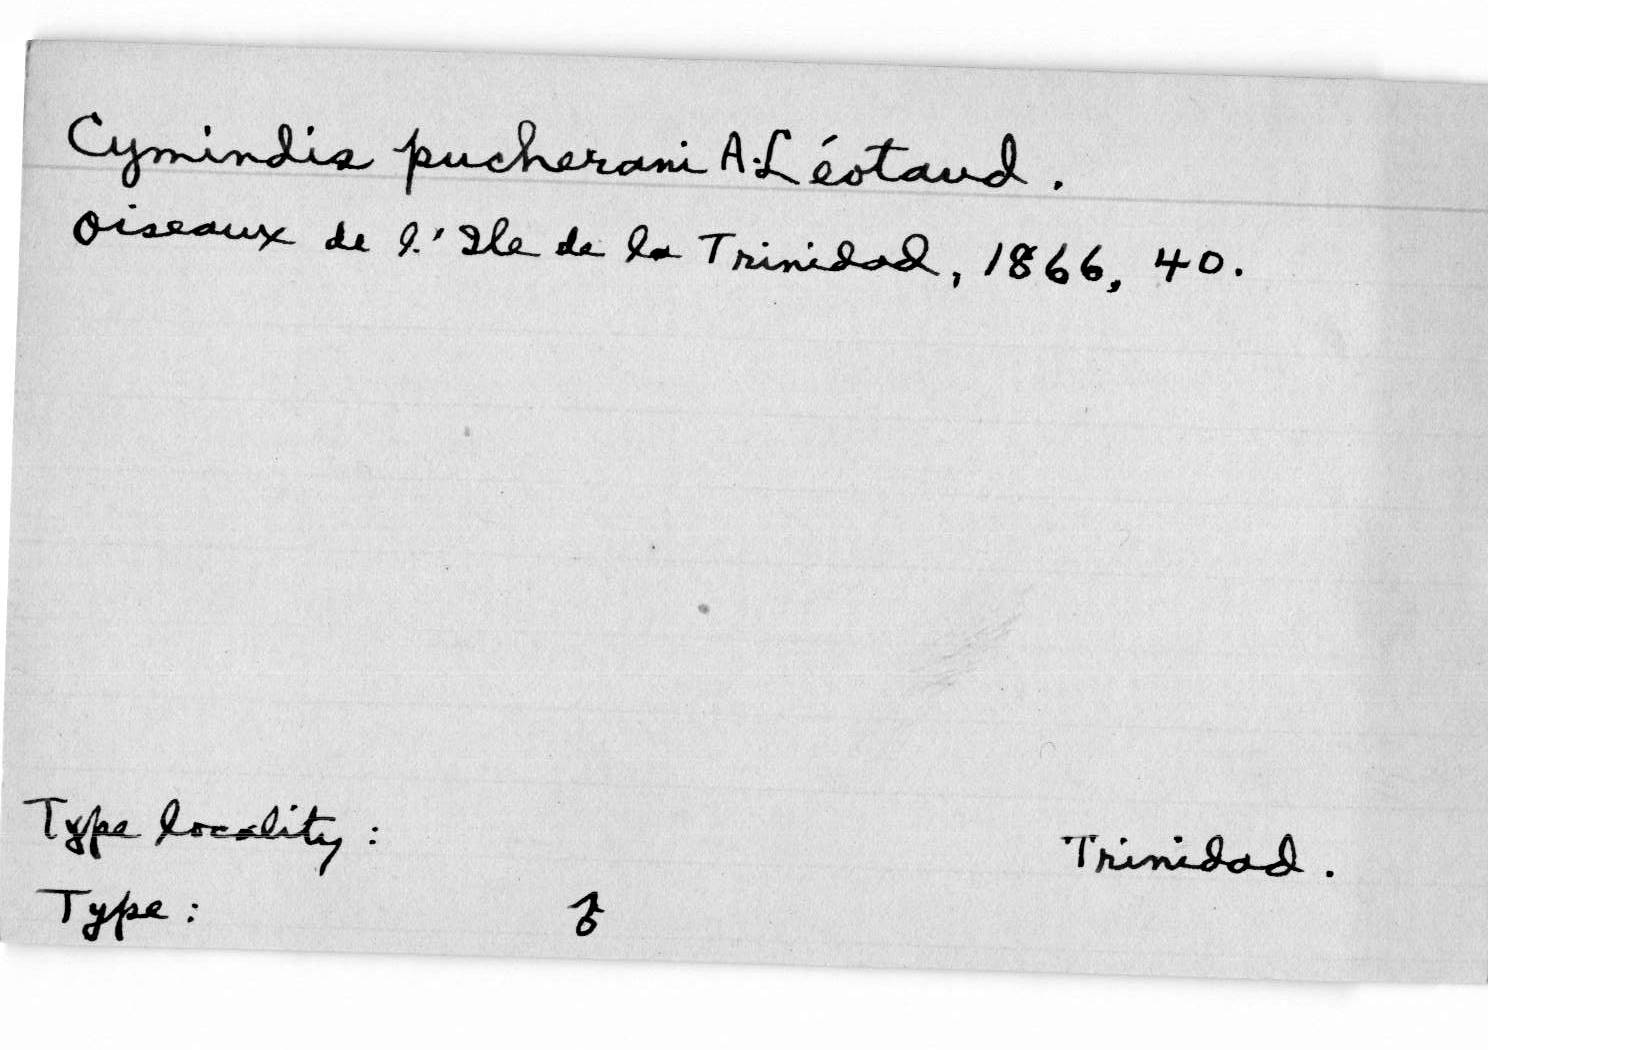 Cymindis pucherani A. Léotaud.
Oiseaux de l'Ile de la Trinidad, 1866, 40.
Type locality: Trinidad.
Type: ♂